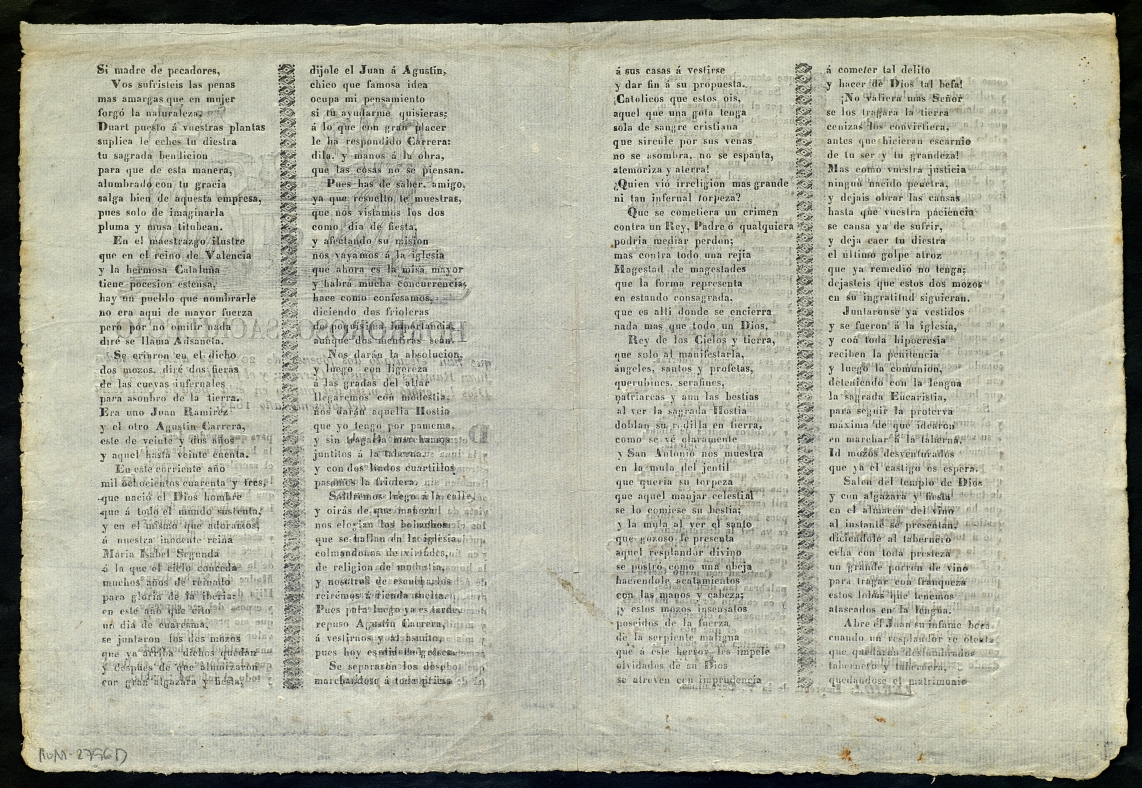 Si madre de pecadores,
Vos sufristeis las penas
mas amargas que en mujer
forgó la naturaleza,
Duart puesto á vuestras plantas
suplica le eches tu diestra
tu sagrada bendicion
para que de esta manera,
alumbrado con tu gracia
salga bien de aquesta empresa,
pues solo de imaginarla
pluma y musa titubean.
En el maestrazgo ilustre
que en el reino de Valencia
y la hermosa Cataluña
tiene pocesion estensa,
hay un pueblo que nombrarle
no era aqui de mayor fuerza
pero por no omitir nada
diré se llama Adsaneta.
Se criaron en el dicho
dos mozos, diré dos fieras
de las cuevas infernales
para asonbro de la tierra.
Era uno Juan Ramirez
y el otro Agustin Carrera,
este de veinte y dos años
y aquel hasta veinte cuenta.
En este corriente año
mil ochocientos cuarenta y tres,
que nació el Dios hombre
que á todo el mundo sustenta,
y en el mismo que adoramos,
á nuestra inocente reina
Maria Isabel Segunda
á la que el cielo conceda
muchos años de reinado
para gloria de la iberia:
en este año que cito
un dia de cuaresma,
se juntaron los dos mozos
que ya arriba dichos quedan
y despues de que almorzaron
con gran algazara y fiesta,
dijole el Juan á Agustin,
chico que famosa idea
ocupa mi pensamiento
si tu ayudarme quisieras;
á lo que con gran placer
le ha respondido Carrera:
dila, y manos á la obra,
que las cosas no se piensan.
Pues has de saber, amigo,
ya que resuelto te muestras,
que nos vistamos los dos
como dia de fiesta,
y afectando su mision
nos vayamos á la iglesia
que ahora es la misa mayor
y habrá mucha concurrencia;
hace como confesamos,
diciendo dos frioleras
de poquisima importancia
aunque dos mentiras sean.
Nos darán la absolucion,
y luego con ligereza
á las gradas del altar
llegaremos con modestia,
nos darán aquella Hostia
que yo tengo por pamema,
y sin tragarla marchamos
juntitos á la taberna,
y con dos lindos cuartillos
pasamos la friolera.
Saldremos luego á la calle,
y oirás de que manera
nos elogian los bolonchos
que se hallan en la iglesia
colmandonos de virtudes,
de religion de modestia,
y nosotros de escucharlos
reiremos á rienda suelta.
Pues pata luego ya es tarde,
repuso Agustin Carrera,
á vestirnos y al asunto,
pues hoy es dia de gresca.
Se separaron los dos
marchandose á toda priesa
á sus casas á vestirse
y dar fin á su propuesta.
¡Catolicos que estos ois,
aquel que una gota tenga
sola de sangre cristiana
que sircule por sus venas
no se asombra, no se espanta,
atemoriza y aterra!
¿Quien vió irreligion mas grande
ni tan infernal torpeza?
Que se cometiera un crimen
contra un Rey, Padre o qualquiera
podria mediar perdon;
mas contra todo una rejia
Magestad de magestades
que la forma representa
en estando consagrada.
que es alti donde se encierra
nada mas que todo un Dios,
Rey de los Cielos y tierra,
que solo al manifestarla,
ángeles, santos y profetas,
querubines, serafines,
patriarcas y aun las bestias
al ver la sagrada Hostia
doblan su rodilla en tierra,
como se vé claramente
y San Antonio nos muestra
en la mula del jentil
que queria su torpeza
que aquel manjar celestial
se lo comiese su bestia;
y la mula al ver el santo
que gozoso le presenta
aquel resplandor divino
se postró como una obeja
haciendole acatamientos
con las manos y cabeza;
¡y estos mozos insensatos
poseidos de la fuerza
de la serpiente maligna
que á este herror les impele
olvidados de su Dios
se atreven con imprudencia
á cometer tal delito
y hacer de Dios tal befa!
¡No valiera mas Señor
se los tragara la tierra
cenizas los convirtiera,
antes que hicieran escarnio
de tu ser y tu grandeza!
Mas como vuestra justicia
ningun nacido penetra,
y dejais obrar las causas
hasta que vuestra paciencia
se causa ya de sufrir,
y deja caer tu diestra
el ultimo golpe atroz
que ya remedio no tenga;
dejasteis que estos dos mozos
en su ingratitud siguieran.
Juntaronse ya vestidos
y se fueron á la iglesia,
y con toda hipocresia
reciben la penitencia
y luego la comunion,
deteniendo con la lengua
la sagrada Eucaristia,
para seguir la proterva
máxima de que idearon
en marchar á la taberna.
Id mozos desventurados
que ya el castigo os espera.
Salen del templo de Dios
y con algazara y fiesta
en el almacen del vino
al instante se presentan,
diciendole al tabernero
echa con toda presteza
un grande porron de vino
para tragar con franqueza
estos lobos que tenemos
atascados en la lengua.
Abre el Juan su infame boca
cuando un resplandor se
que quedaron deslumbrados
tabernero y tabernera,
quedandose el matrimonio